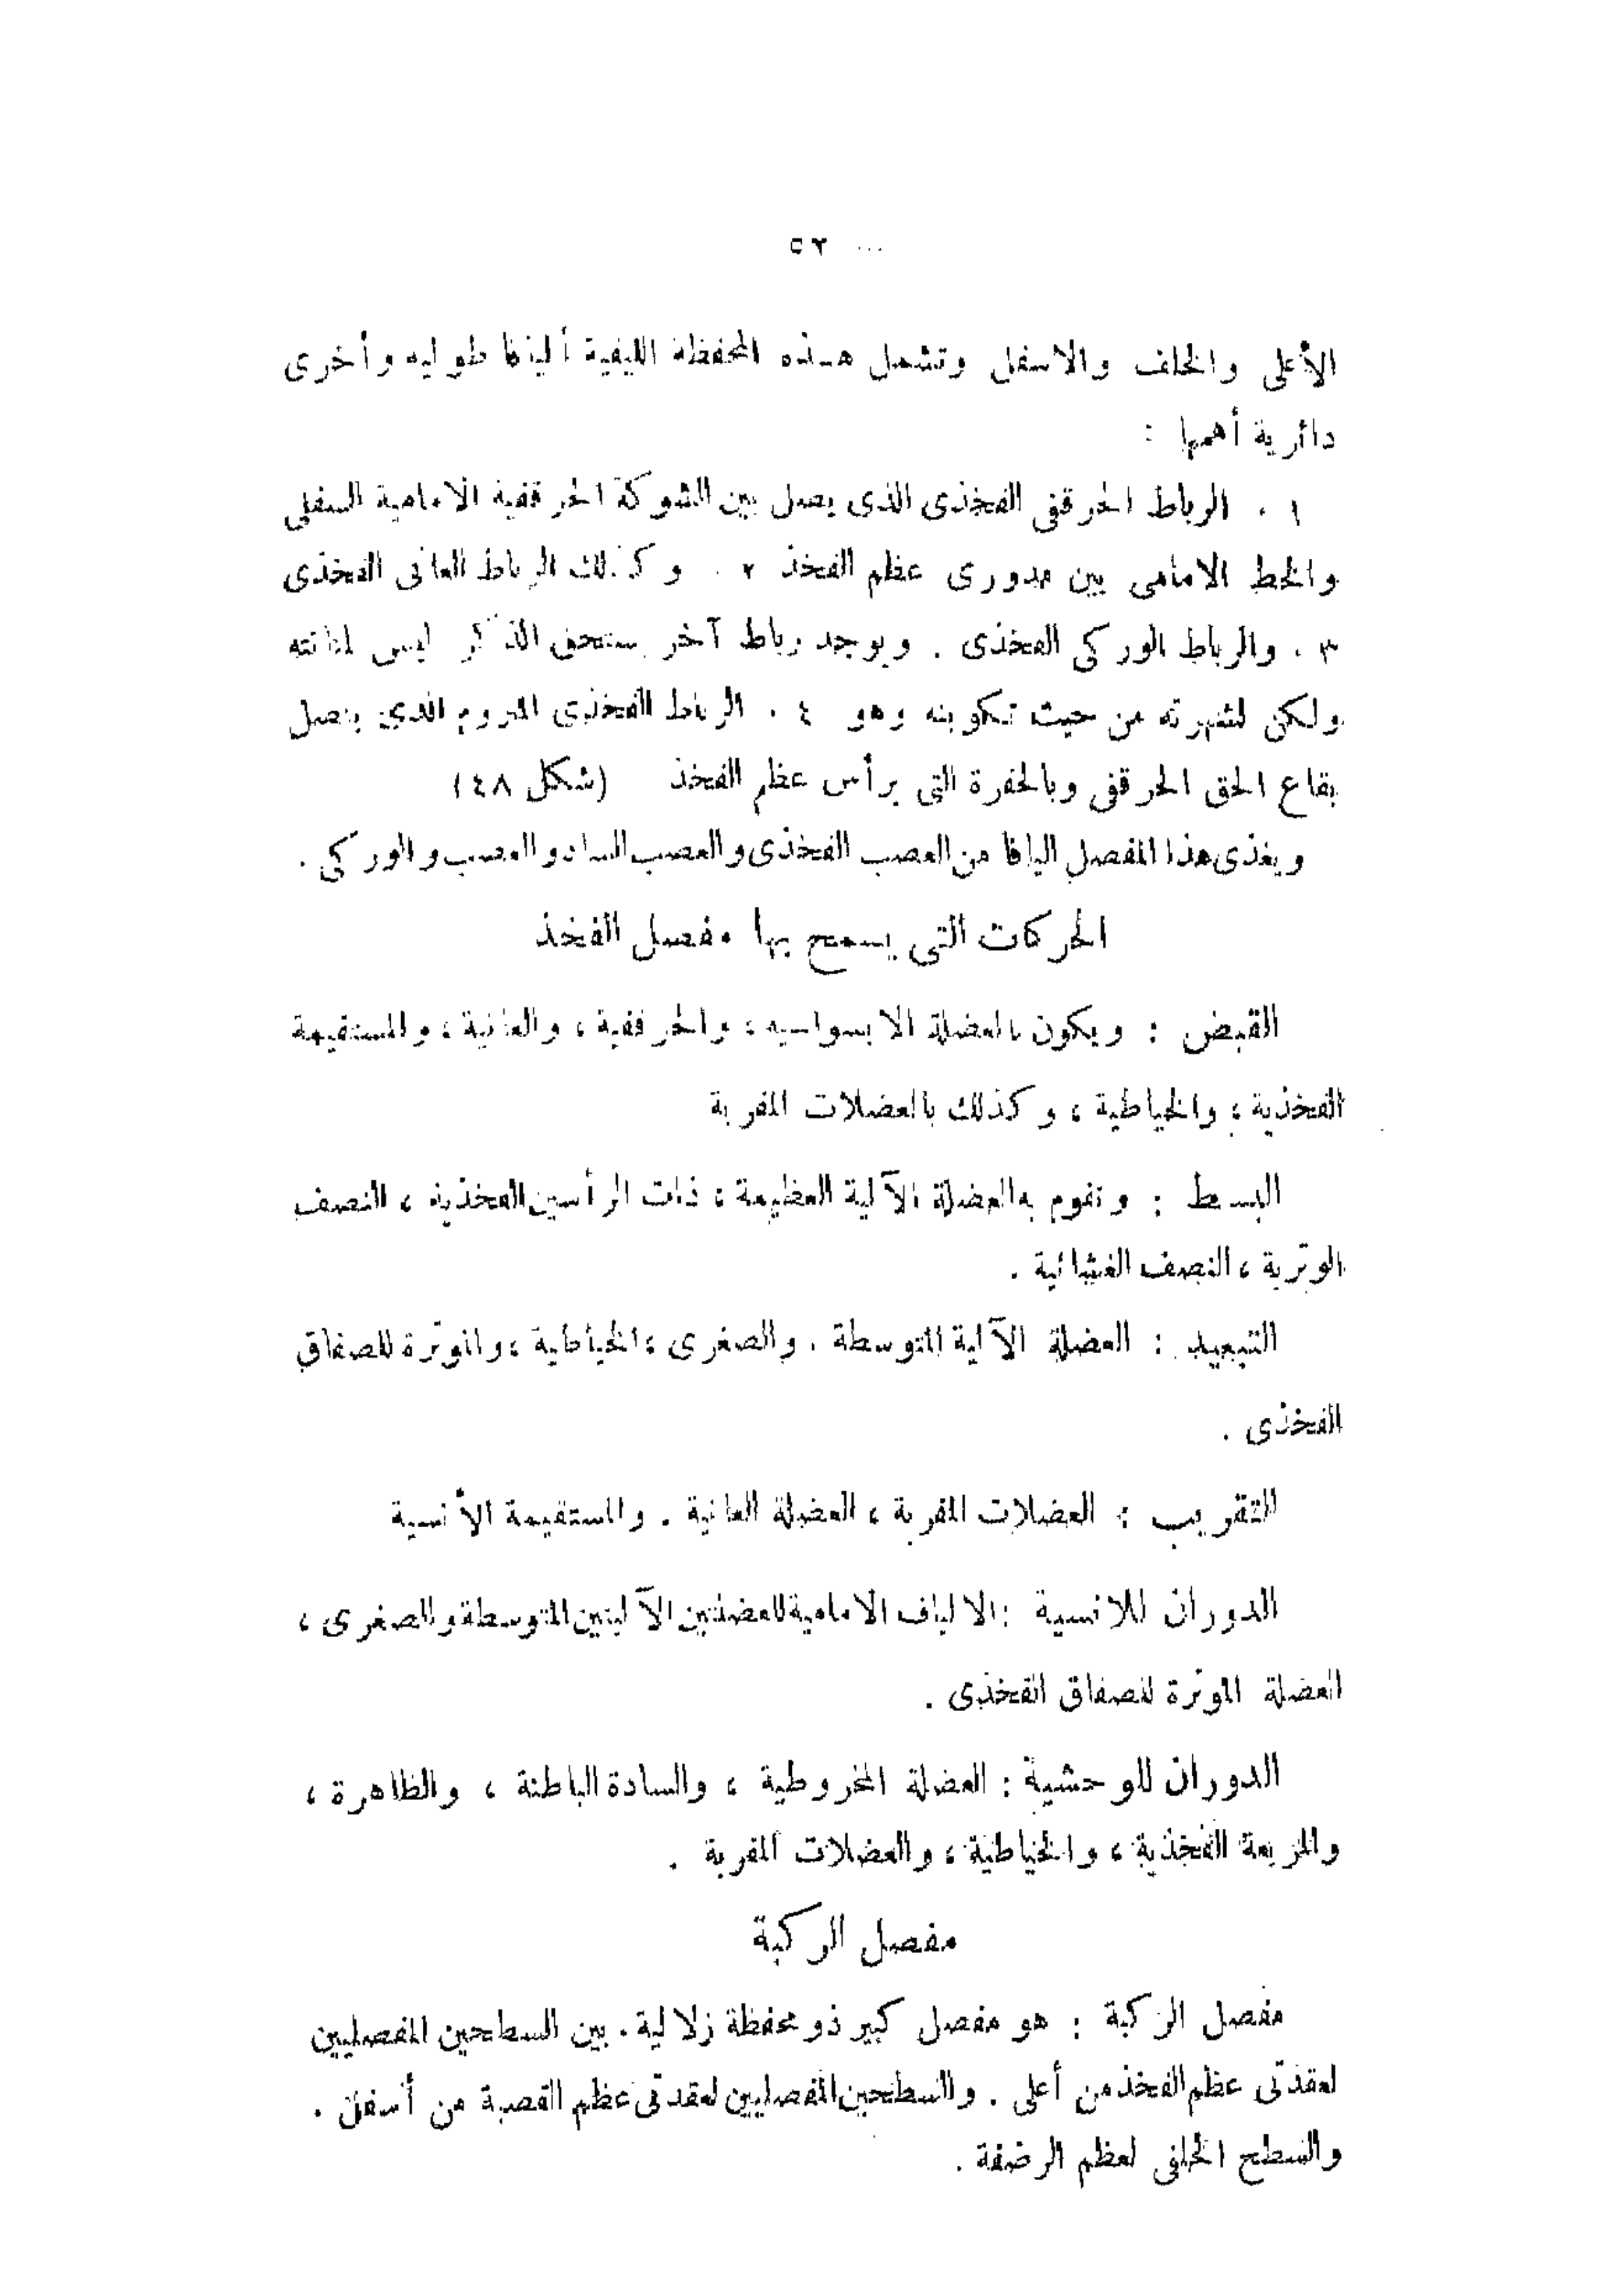 ٥٢
الأعلى والخلف والاسفل وتشمل هذه المحفظة الليفية أليافا طوليه وأخرى
دائرية أهمها :
١ . الرباط الحرقفى الفخذى الذى يصل بين الشوكة الحرقفية الامامية السفلى
والخط الامامى بين مدورى عظم الفخذ ٢ . وكذلك الرباط العانى الفخذى
٣ . والرباط الوركى الفخذى . ويوجد رباط آخر يستحق الذكر ليس لمتانته
ولكن لشهرته من حيث تكوينه وهو ٤ . الرباط الفخذى المبروم الذى يتصل
بقاع الحق الحرقفى وبالحفرة التى برأس عظم الفخذ (شكل ٤٨)
ويغذى هذا المفصل اليافا من العصب الفخذى والعصب الساد والعصب والوركى .
الحركات التى يسمح بها مفصل الفخذ
القبض : ويكون بالعضلة الابسواسيه ، والحرقفية ، والعانية ، والمستقيمة
الفخذية ، والخياطية ، وكذلك بالعضلات المقربة
البسط : وتقوم به العضلة الآلية العظيمة ، ذات الرأسين الفخذية ، النصف
الوترية ، النصف الغشائية .
التبعيد : العضلة الآلية المتوسطة . والصغرى ، الخياطية ، والموترة للصفاق
الفخذى .
التقريب : العضلات المقربة ، العضلة العانية . والمستقيمة الأنسية
الدوران للانسية : الالياف الامامية للعضلتين الآليتين المتوسطة والصغرى ،
العضلة الموترة للصفاق الفخذى .
الدوران للوحشية : العضلة المخروطية ، والسادة الباطنة ، والظاهرة ،
والمربعة الفخذية ، والخياطية ، والعضلات المقربة .
مفصل الركبة
مفصل الركبة : هو مفصل كبير ذو محفظة زلالية . بين السطحين المفصليين
لعقدتى عظم الفخذ من أعلى . والسطحين المفصليين لعقدتى عظم القصبة من أسفل .
والسطح الخلفى لعظم الرضفة .